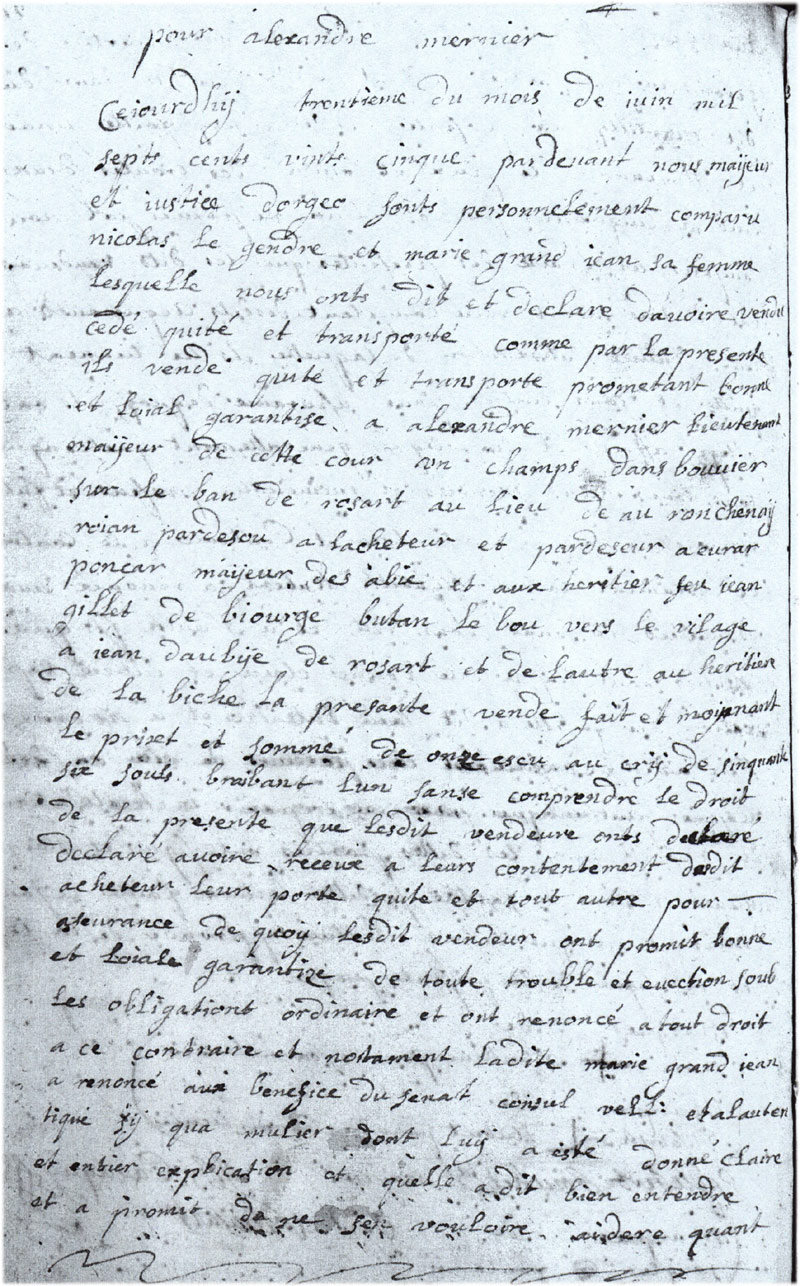 pour alexandre mernier
Cejourdhÿ trentieme du mois de iuin mil
septs cents vints cinque pardevant nous maÿeur
et iustice dorgeo sonts personnelement comparu
nicolas le gendre et marie grand iean sa femme
lesquelle nous onts dit et declare davoire vendu
cedé quité et transporté comme par la presente
ils vende quite et transporte prometant bonne
et loial garantise a alexandre mernier lieutenant
maÿeur de cette cour un champs dans bouvier
sur le ban de rosart au lieu de au ronchenaÿ
roian pardesou a lacheteur et pardeseur a eurar
ponçar maÿeur des abie et aux heritier feu iean
gillet de biourge butan le bou vers le vilage
a iean daubÿe de rosart et de lautre au heritiere
de la biche la presante vende fait et moÿenant
le prixt et sommé de onze escu au crÿ de sinquante
six souls braibant lun sanse comprendre le droit
de la presente que lesdit vendeure onts declaré
declaré avoire receux a leurs contentement dudit
acheteur leur porte quite et tout autre pour
aseurance de quoÿ lesdit vendeur ont promit bonne
et loiale garantize de toute trouble et evection soub
les obligationt ordinaire et ont renoncé a tout droit
a ce contraire et nostament ladite marie grand iean
a renoncé aux benefice du senat consul vell: et a lauten
tique sÿ qua mulier dont luÿ a esté donné claire
et entier explication et quelle a dit bien entendre
et a promit de ne sen vouloire aidere quant